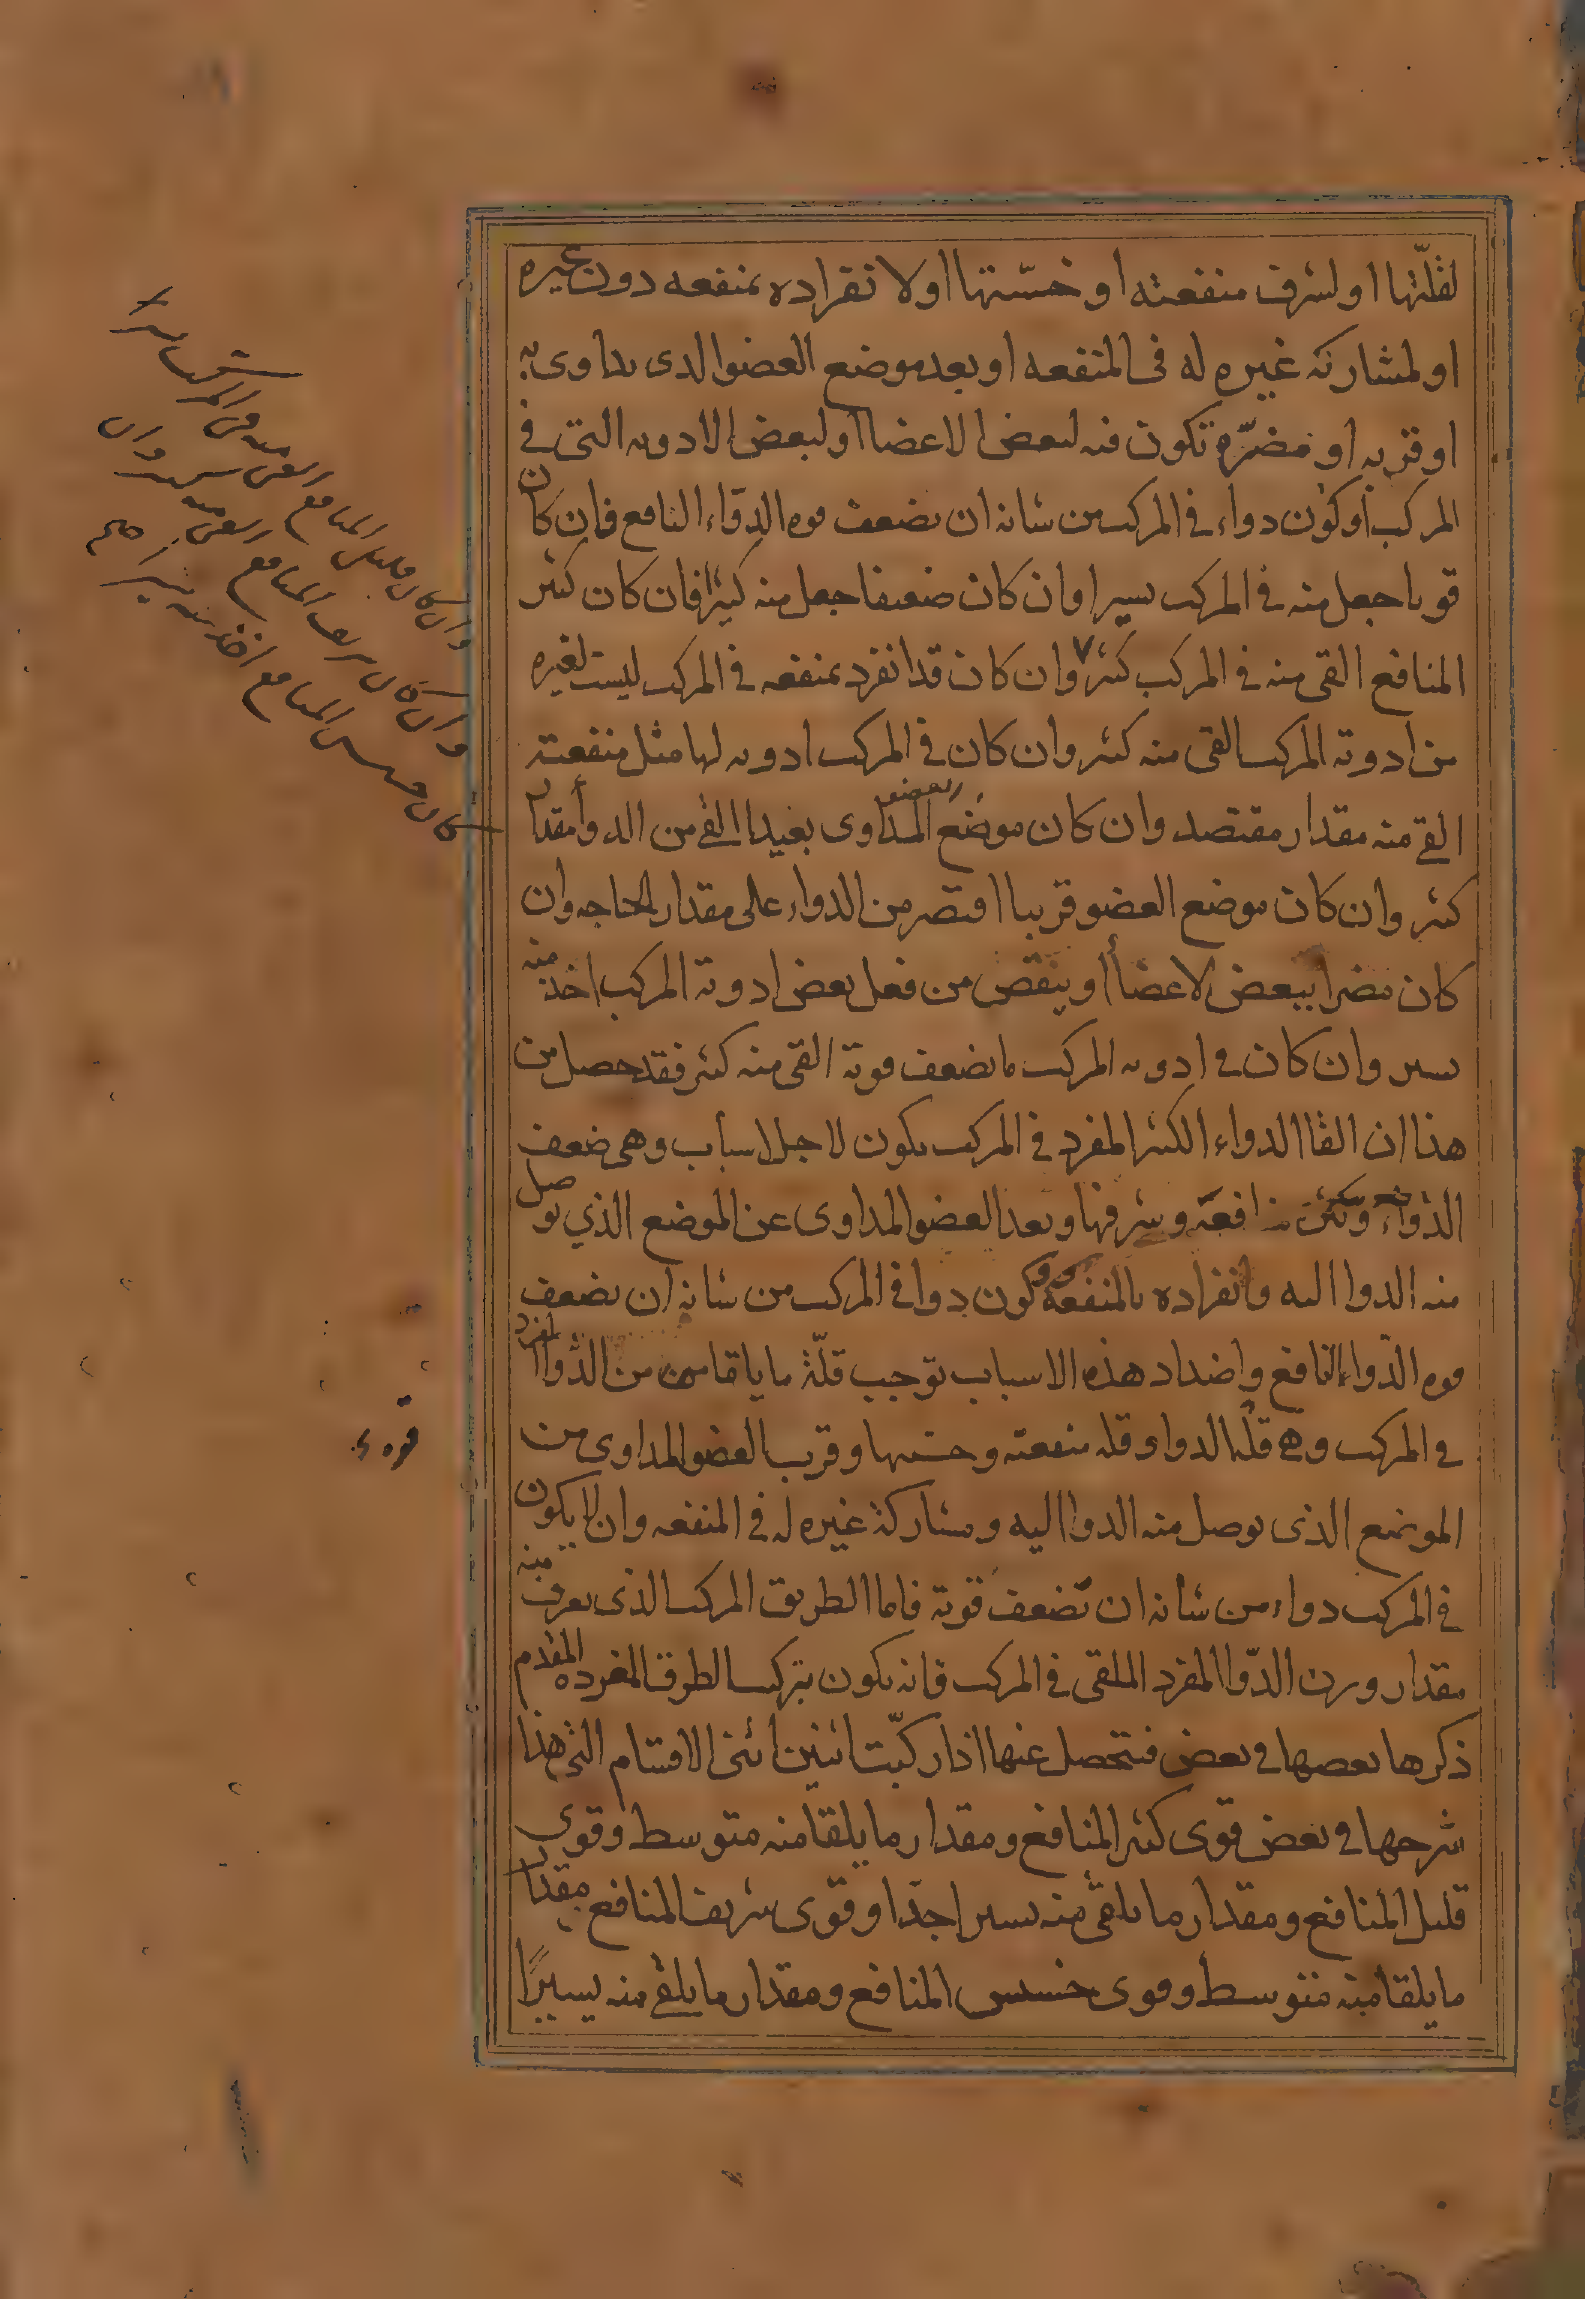 لقلّتها او لشرف منفعته او خسّتها او لا نفراده بمنفعه دون غيره
او لمشاركه غيره له فى المنفعه او بعد موضع العضو الدى يداوى به
او قربه او مضرّه تكون منه لبعض الاعضا او لبعض الادويه التى فى
المركب او كون دواء فى المركب من شانه ان يضعف قوه الدوّاء النافع فان كان
قويا جعل منه فى المركب يسيرا وان كان ضعيفا جعل منه كثيرا فان كان كثير
المنافع القى منه فى المركب كثير وان كان قد انفرد بمنفعه فى المركب ليست لغيره
من ادويه المركب القى منه كثير وان كان فى المركب ادويه لها مثل منفعته
القى منه مقدار مقتصد وان كان موضع العضو المداوى بعيدا القى من الدوا مقدار
كثير وان كان موضع العضو قريبا اقتصر من الدواء على مقدار الحاجه وان
كان مضرا ببعض الاعضا او ينقص من فعل بعض ادويه المركب اخذ منه
يسير وان كان فى ادويه المركب ما يضعف قوته القى منه كثير فقد حصل من
هذا ان القا الدواء الكثير المفرد فى المركب يكون لاجل اسباب وهى ضعف
الدواء وكثرة منافعه وشرفها وبعد العضو المداوى عن الموضع الذي يوصل
منه الدوا اليه وانفراده بالمنفعه وكون دوا فى المركب من شانه ان يضعف
قوه الدّواء النافع واضداد هذه الاسباب توجب قلّة ما يلقا من الدّوا المفرد
فى المركب وهى قلة الدوا وقله منفعته وخستها وقرب العضو المداوى من
الموضع الذى يوصل منه الدوا اليه ومشاركة غيره له فى المنفعه وان لا يكون
فى المركب دواء من شانه ان تضعف قوته فاما الطريق المركب الذى يعرف منه
مقدار وزن الدّوا المفرد الملقى فى المركب فانه يكون بتركيب الطرق المفرده المقدم
ذكرها بعضها فى بعض فتتحصل عنها اذا ركبّت اثنين اثنين الاقسام التى هذا
شرحها فى بعض قوى كثير المنافع ومقدار ما يلقا منه متوسط وقوى
قليل المنافع ومقدار ما يلقى منه يسير اجدّا وقوى شريف المنافع مقدار
ما يلقا منه متوسط وقوى خسيس المنافع ومقدار ما يلقى منه يسيرًا
وان كان قليل المنافع القى منه فى المركب
وان كان شريف المنافع القى منه وان
كان خسيس المنافع اخذ منه يسيرا صح